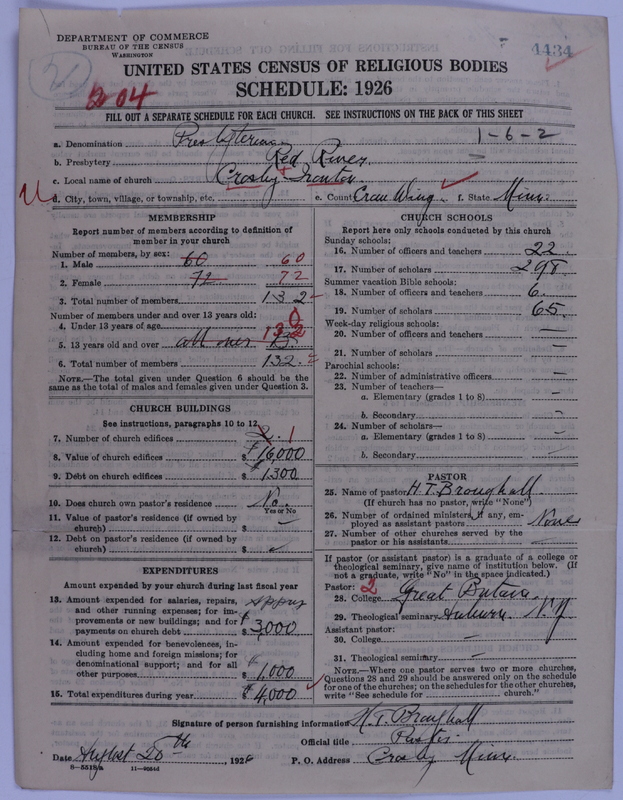 DEPARTMENT OF COMMERCE
BUREAU OF THE CENSUS
WASHINGTON
4434
UNITED STATES CENSUS OF RELIGIOUS BODIES
204
SCHEDULE: 1926
FILL OUT A SEPARATE SCHEDULE FOR EACH CHURCH. SEE INSTRUCTIONS ON THE BACK OF THIS SHEET
1-6-2
a. Denomination Presbyterian
b. Presbytery Red River
c. Local name of church Crosby + Ironton
d. City, town, village, or township, etc, e. County Crow Wing f. State Minn.
MEMBERSHIP
Report number of members according to definition of
member in your church
Number of members, by sex:
1. Male 60 60
2. Female 72 72
3. Total number of members 132
Number of members under and over 13 years old:
4. Under 13 years of age 0
5. 13 years old and over all over 13 132
6. Total number of members 132
NOTE.—The total given under Question 6 should be the
same as the total of males and females given under Question 3.
CHURCH BUILDINGS
See instructions, paragraphs 10 to 12
7. Number of church edifices 2 1
8. Value of church edifices $16,000
9. Debt on church edifices $1300
10. Does church own pastor's residence No.
Yes or No
11. Value of pastor's residence (if owned by
church) $ —
12. Debt on pastor's residence (if owned by
church) $
EXPENDITURES
Amount expended by your church during last fiscal year
13. Amount expended for salaries, repairs,
and other running expenses; for im-
provements or new buildings; and for
payments on church debt $3,000
14. Amount expended for benevolences, in-
cluding home and foreign missions; for
denominational support; and for all
other purposes $1,000
15. Total expenditures during year $4,000
CHURCH SCHOOLS
Report here only schools conducted by this church
Sunday schools:
16. Number of officers and teachers 22
17. Number of scholars 298
Summer vacation Bible schools:
18. Number of officers and teachers 6
19. Number of scholars 65
Week-day religious schools:
20. Number of officers and teachers —
21. Number of scholars —
Parochial schools:
22. Number of administrative officers —
23. Number of teachers—
a. Elementary (grades 1 to 8) —
b. Secondary —
24. Number of scholars—
a. Elementary (grades 1 to 8) —
b. Secondary —
PASTOR
25. Name of pastor H. T. Broughall
(If church has no pastor, write "None")
26. Number of ordained ministers, if any, em-
ployed as assistant pastors None
27. Number of other churches served by the
pastor or his assistants —
If pastor (or assistant pastor) is a graduate of a college or
theological seminary, give name of institution below. (If
not a graduate, write "No" in the space indicated.)
Pastor: 2
28. College Great Britain
29. Theological seminary Auburn N.Y
Assistant pastor:
30. College —
31. Theological seminary —
NOTE.—Where one pastor serves two or more churches,
Questions 28 and 29 should be answered only on the schedule
for one of the churches; on the schedules for the other churches,
write "See schedule for church."
Signature of person furnishing information H. T. Broughall
Official title Pastor
Date August 20th, 1926 P. O. Address Crosby Minn.
8-5518a 11-9504d